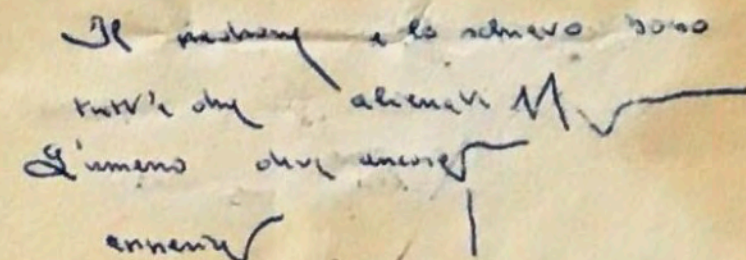 Il padrone e lo schiavo sono
tutt'e due alienati
L'umano deve ancora
avvenire